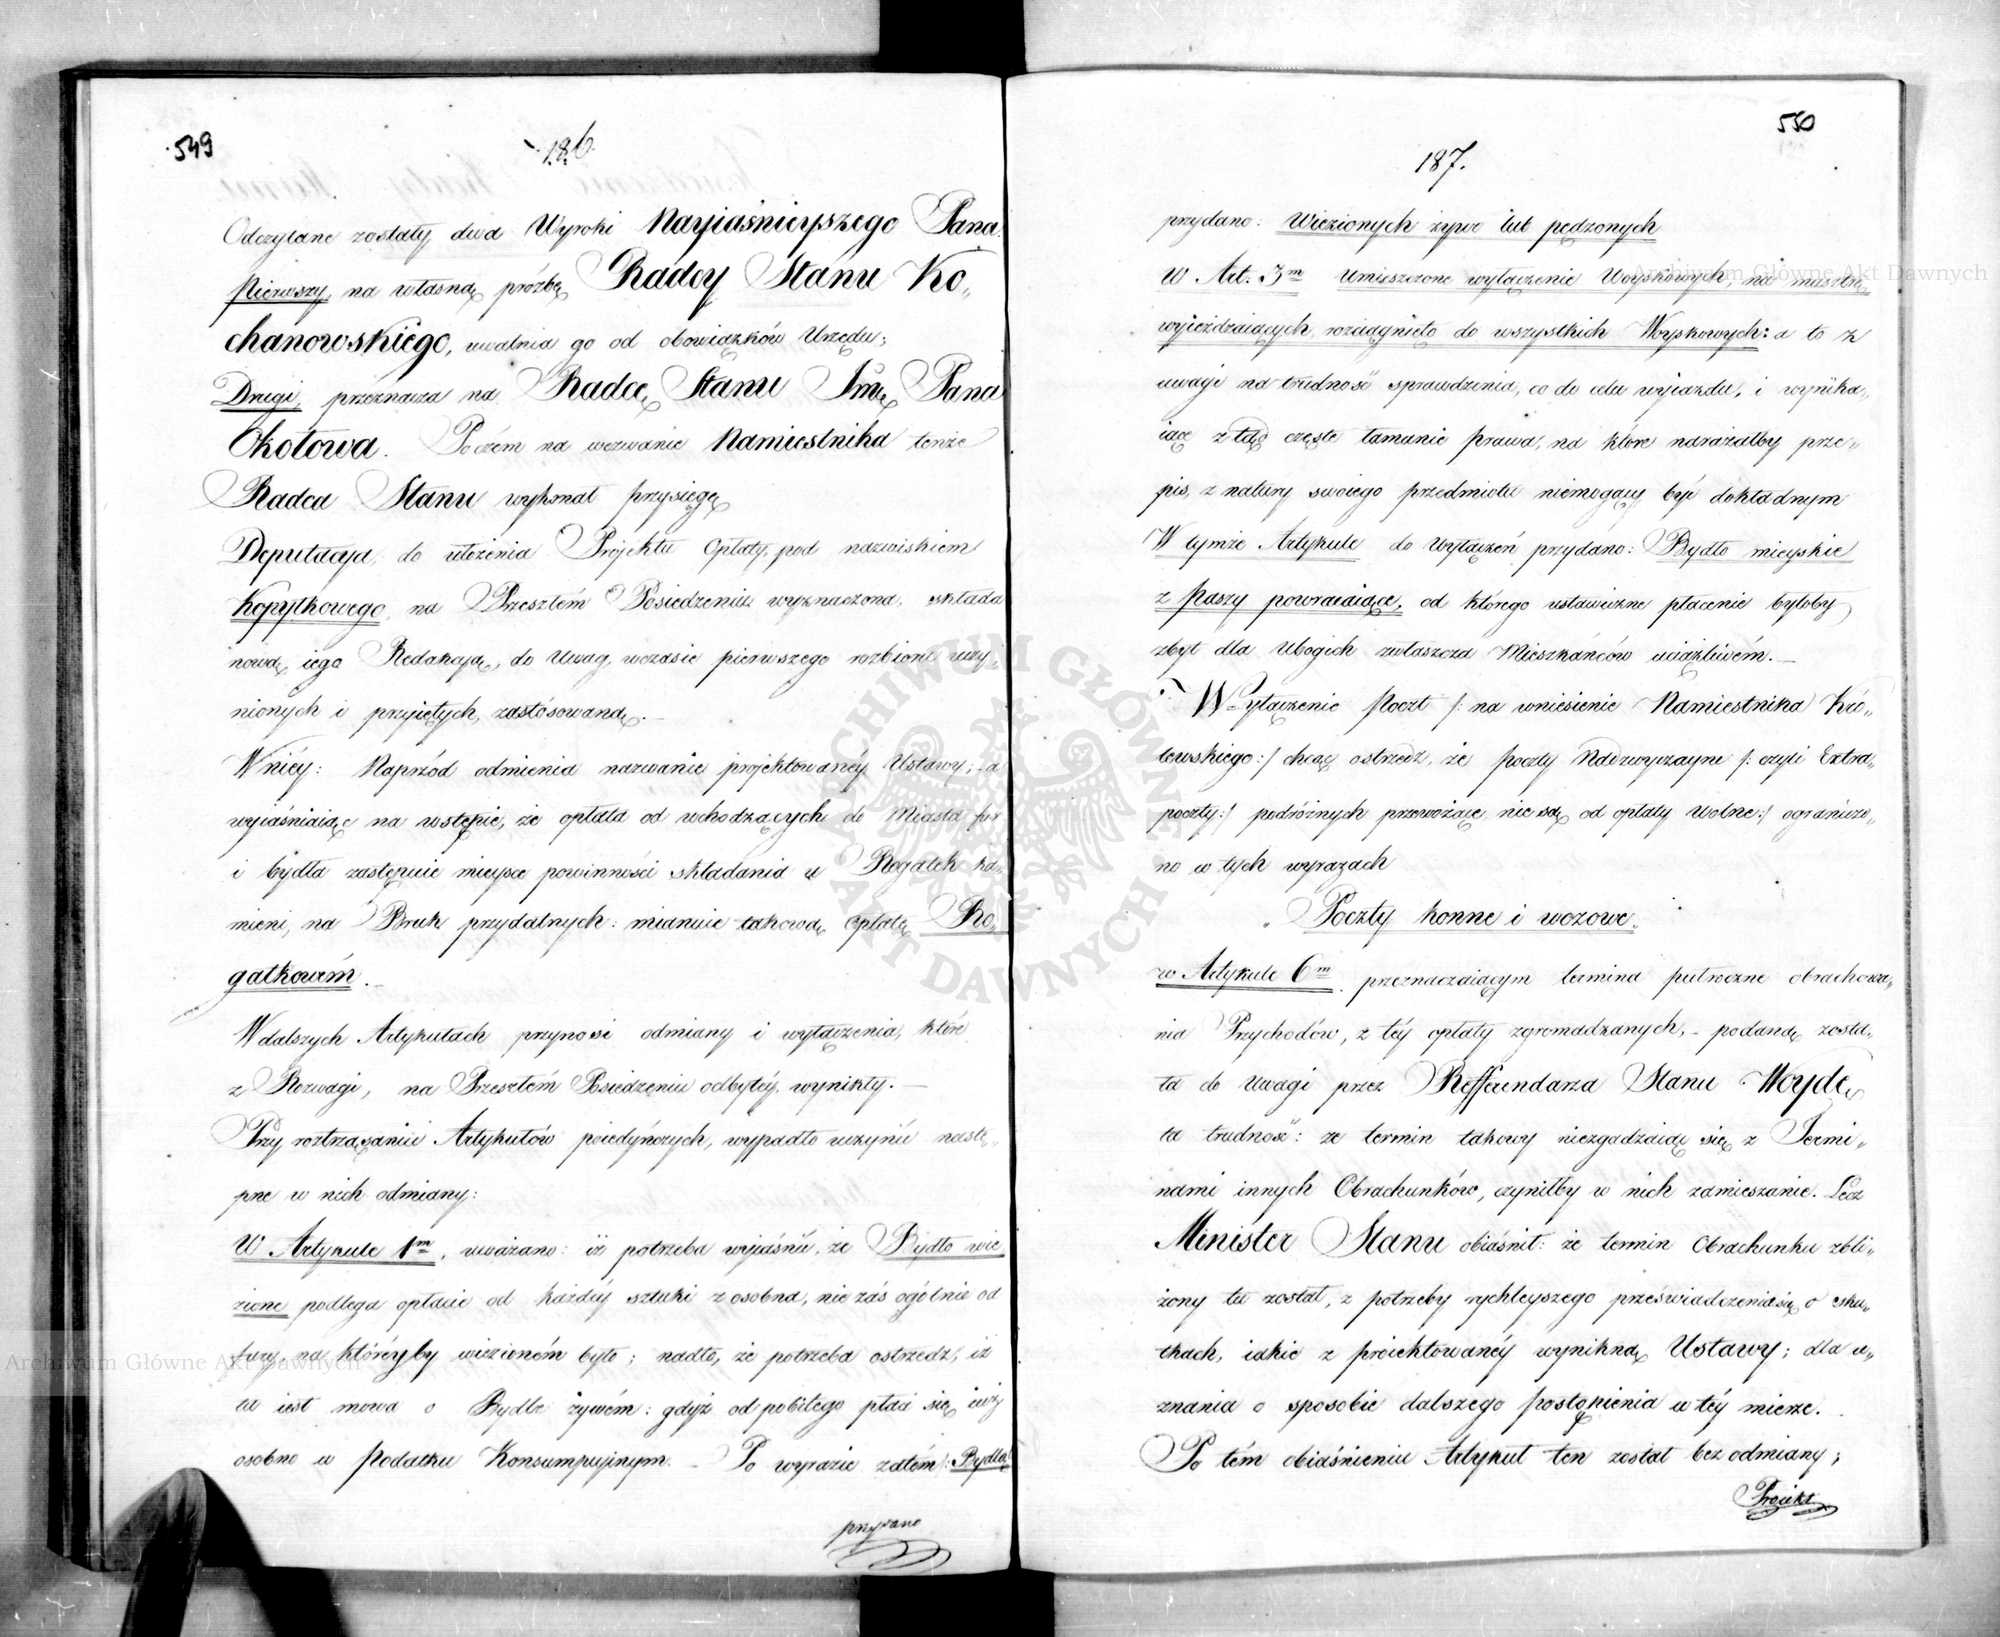 549
186.
Odczytane zostały dwa Wyroki Nayiaśnieyszego Pana.
Pierwszy, na własną próźbę Radcy Stanu Ko„
chanowskiégo, uwalnia go od obowiązków Urzędu;
Drugi, przeznacza na Radcę Stanu Jmę Pana
Okołowa. Poczém na wezwanie Namiestnika tenże
Radca Stanu wykonał przysięgę
Deputacya, do ułożenia Projektu Opłaty, pod nazwiskiem
Kopytkowego, na Przeszłém Posiedzeniu wyznaczona, składa
nową iego Redakcyą, do Uwag, wczasie pierwszego rozbioru uczy„
nionych i przyiętych, zastósowaną.
Wniéy: Naprzód odmienia nazwanie projektowanéy Ustawy; a
wyiaśniaiąc na wstępie, że opłata od wchodzących do Miasta fur
i bydła zastępuie mieysce powinności składania u Rogatek ka„
mieni, na Bruk przydatnych: mianuie takową Opłatę Ro„
gatkowém.
Wdalszych Artykułach przynosi odmiany i wyłączenia, które
z Rozwagi, na Przeszłém Posiedzeniu odbytéy, wynikły.
Przy roztrząsaniu Artykułów poiedyńczych, wypadło uczynić nastę„
pne w nich odmiany:
W Artykule 1m, uważano: iż potrzeba wyiaśnić, że Bydło wie
zione podlega opłacie od każdéy sztuki zosobna, nie zaś ogólnie od
fury, na któréyby wiezioném było; nadto, że potrzeba ostrzedz, iż
tu iest mowa o Bydle żywém: gdyż od pobitego płaci się iuż
osobno w Podatku Konsumpujnym. Po wyrazie zatém: Bydła
przydano
550
187.
przydano: Wiezionych żywo lub pędzonych
W Art. 3m Umieszczone wyłączenie Woyskowych, na musztrę
wyieżdzaiących, rozciągnięto do wszystkich Woyskowych: a to z
uwagi na trudność sprawdzenia, co do celu wyiazdu, i wynika„
iące ztąd częste łamanie prawa, na które narażałby prze„
pis, z natury swoiego przedmiotu niemogący być dokładnym
W tymże Artykule do Wyłączeń przydano: Bydło mieyskie
z Paszy powracaiące, od którego ustawiczne płacenie byłoby
zbyt dla Ubogich zwłaszcza Mieszkańców uciążliwém.
Wyłączenie Poczt /: na wniesienie Namiestnika Kró„
lewskiego :/ chcąc ostrzedz, że poczty Nadzwyczayne /: czyli Extra„
poczty :/ podróżnych przewożące nie są od opłaty wolne :/ ograniczo„
no w tych wyrazach
„Poczty konne i wozowe„
w Artykule 6m, przeznaczaiącym termina pułroczne obrachowa„
nia Przychodów, z téy opłaty zgromadzanych, – podaną zosta„
ła do Uwagi przez Refferendarza Stanu Woydę
ta trudność: że termin takowy niezgadzaiąc się z Termi„
nami innych Obrachunków, czyniłby w nich zamieszanie. Lecz
Minister Stanu obiaśnił: że termin Obrachunku zbli„
żony tu został, z potrzeby rychleyszego przeświadczenia się o sku„
tkach, iakie z proiektowanéy wynikną Ustawy; dla u„
znania o sposobie dalszego postąpienia w téy mierze.
Po tém obiaśnieniu Artykuł ten został bez odmiany;
Proiekt
ARCHIWUM GŁÓWNE AKT DAWNYCH
Archiwum Główne Akt Dawnych
Archiwum Główne Akt Dawnych